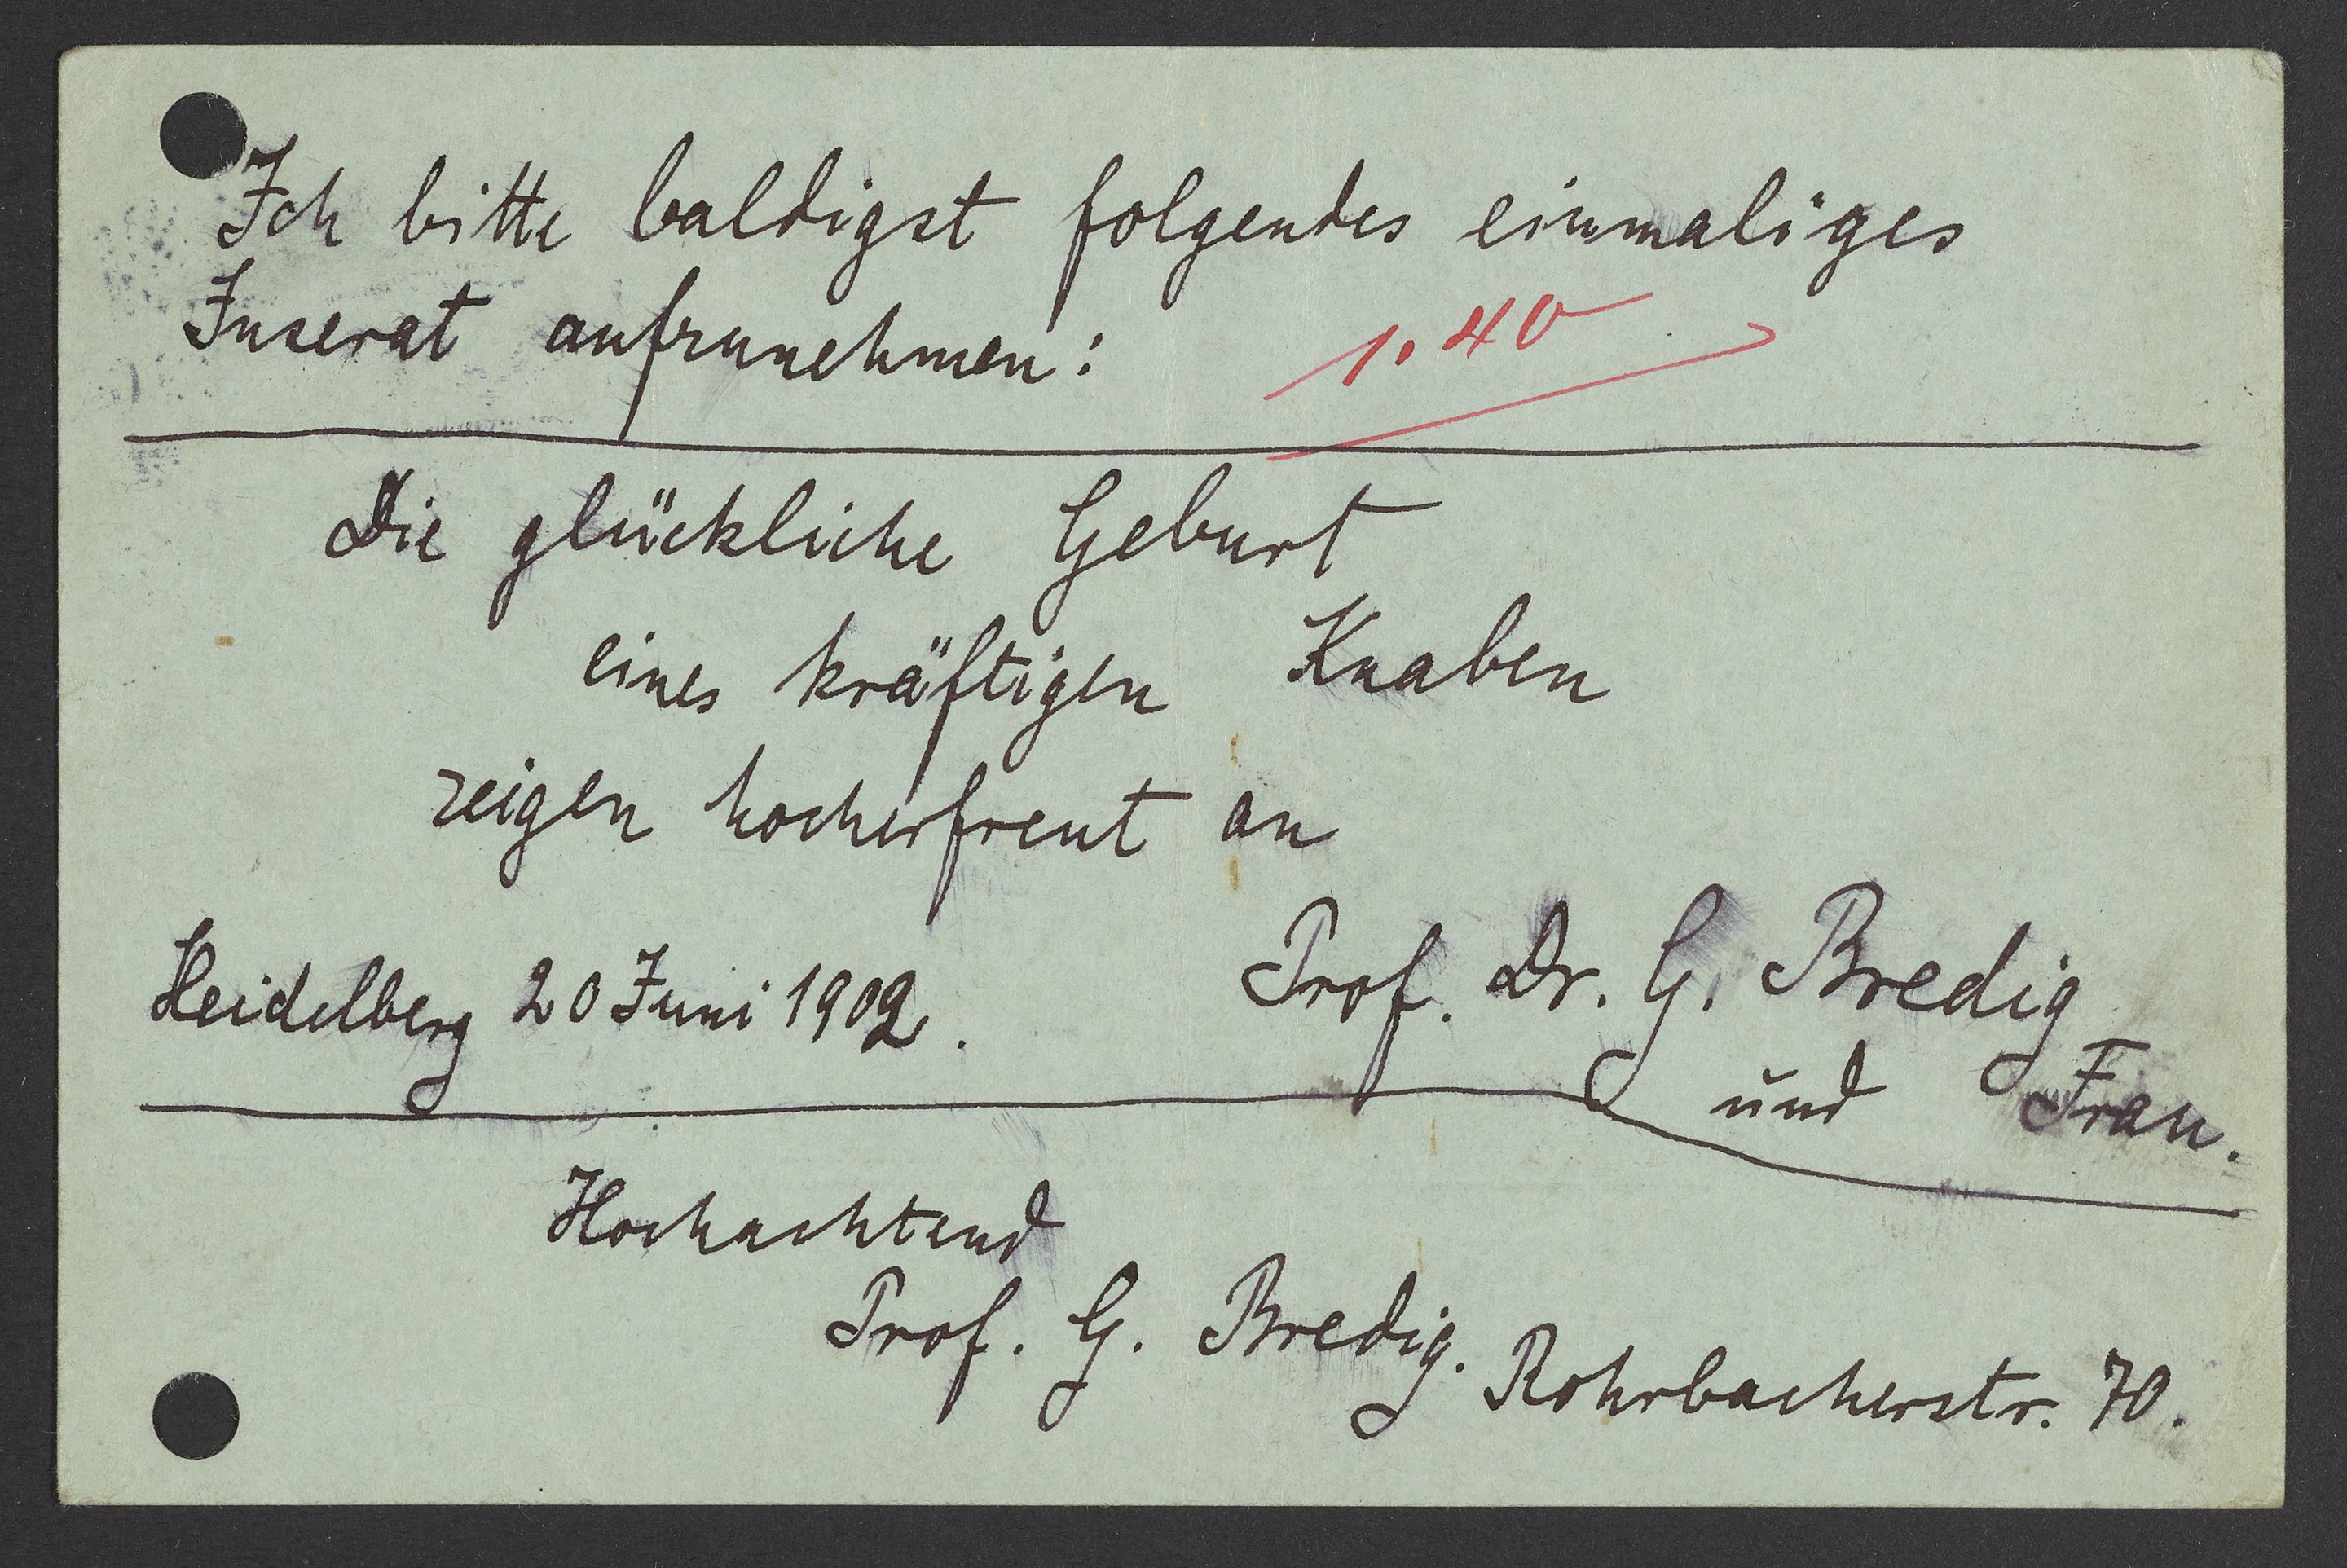 Ich bitte baldigst folgendes einmaliges
Inserat aufzunehmen:
1.40
Die glückliche Geburt
eines kräftigen Knaben
zeigen hocherfreut an
Heidelberg 20 Juni 1902.
Prof. Dr. G. Bredig
und Frau.
Hochachtend
Prof. G. Bredig.
Rohrbacherstr. 70.